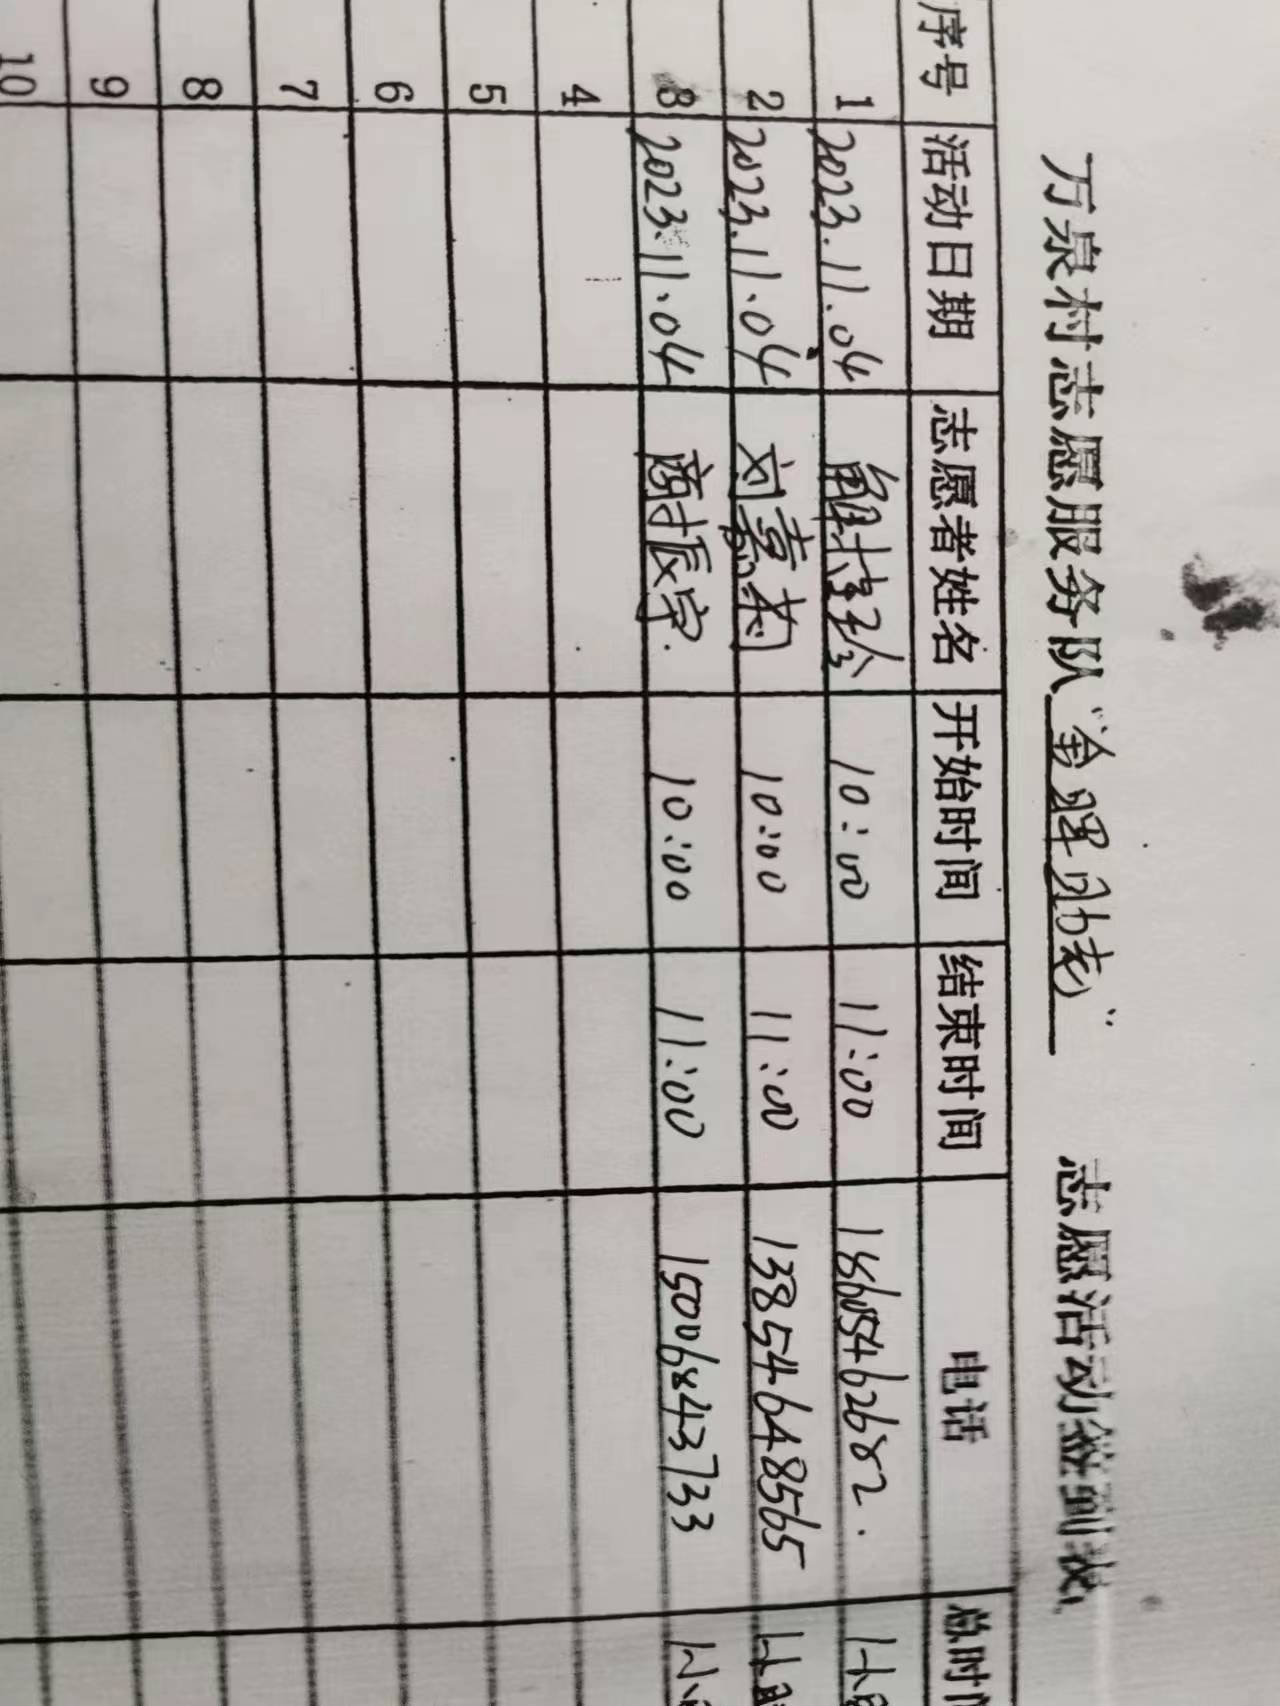 万泉村志愿服务队“金晖助老” 志愿活动签到表
序号 活动日期 志愿者姓名 开始时间 结束时间 电话 总时间
1 2023.11.04 解桂珍 10:00 11:00 18605462682.
2 2023.11.04 刘嘉菊 10:00 11:00 13854648565
3 2023.11.04 商振宇. 10:00 11:00 15006843733
4
5
6
7
8
9
10